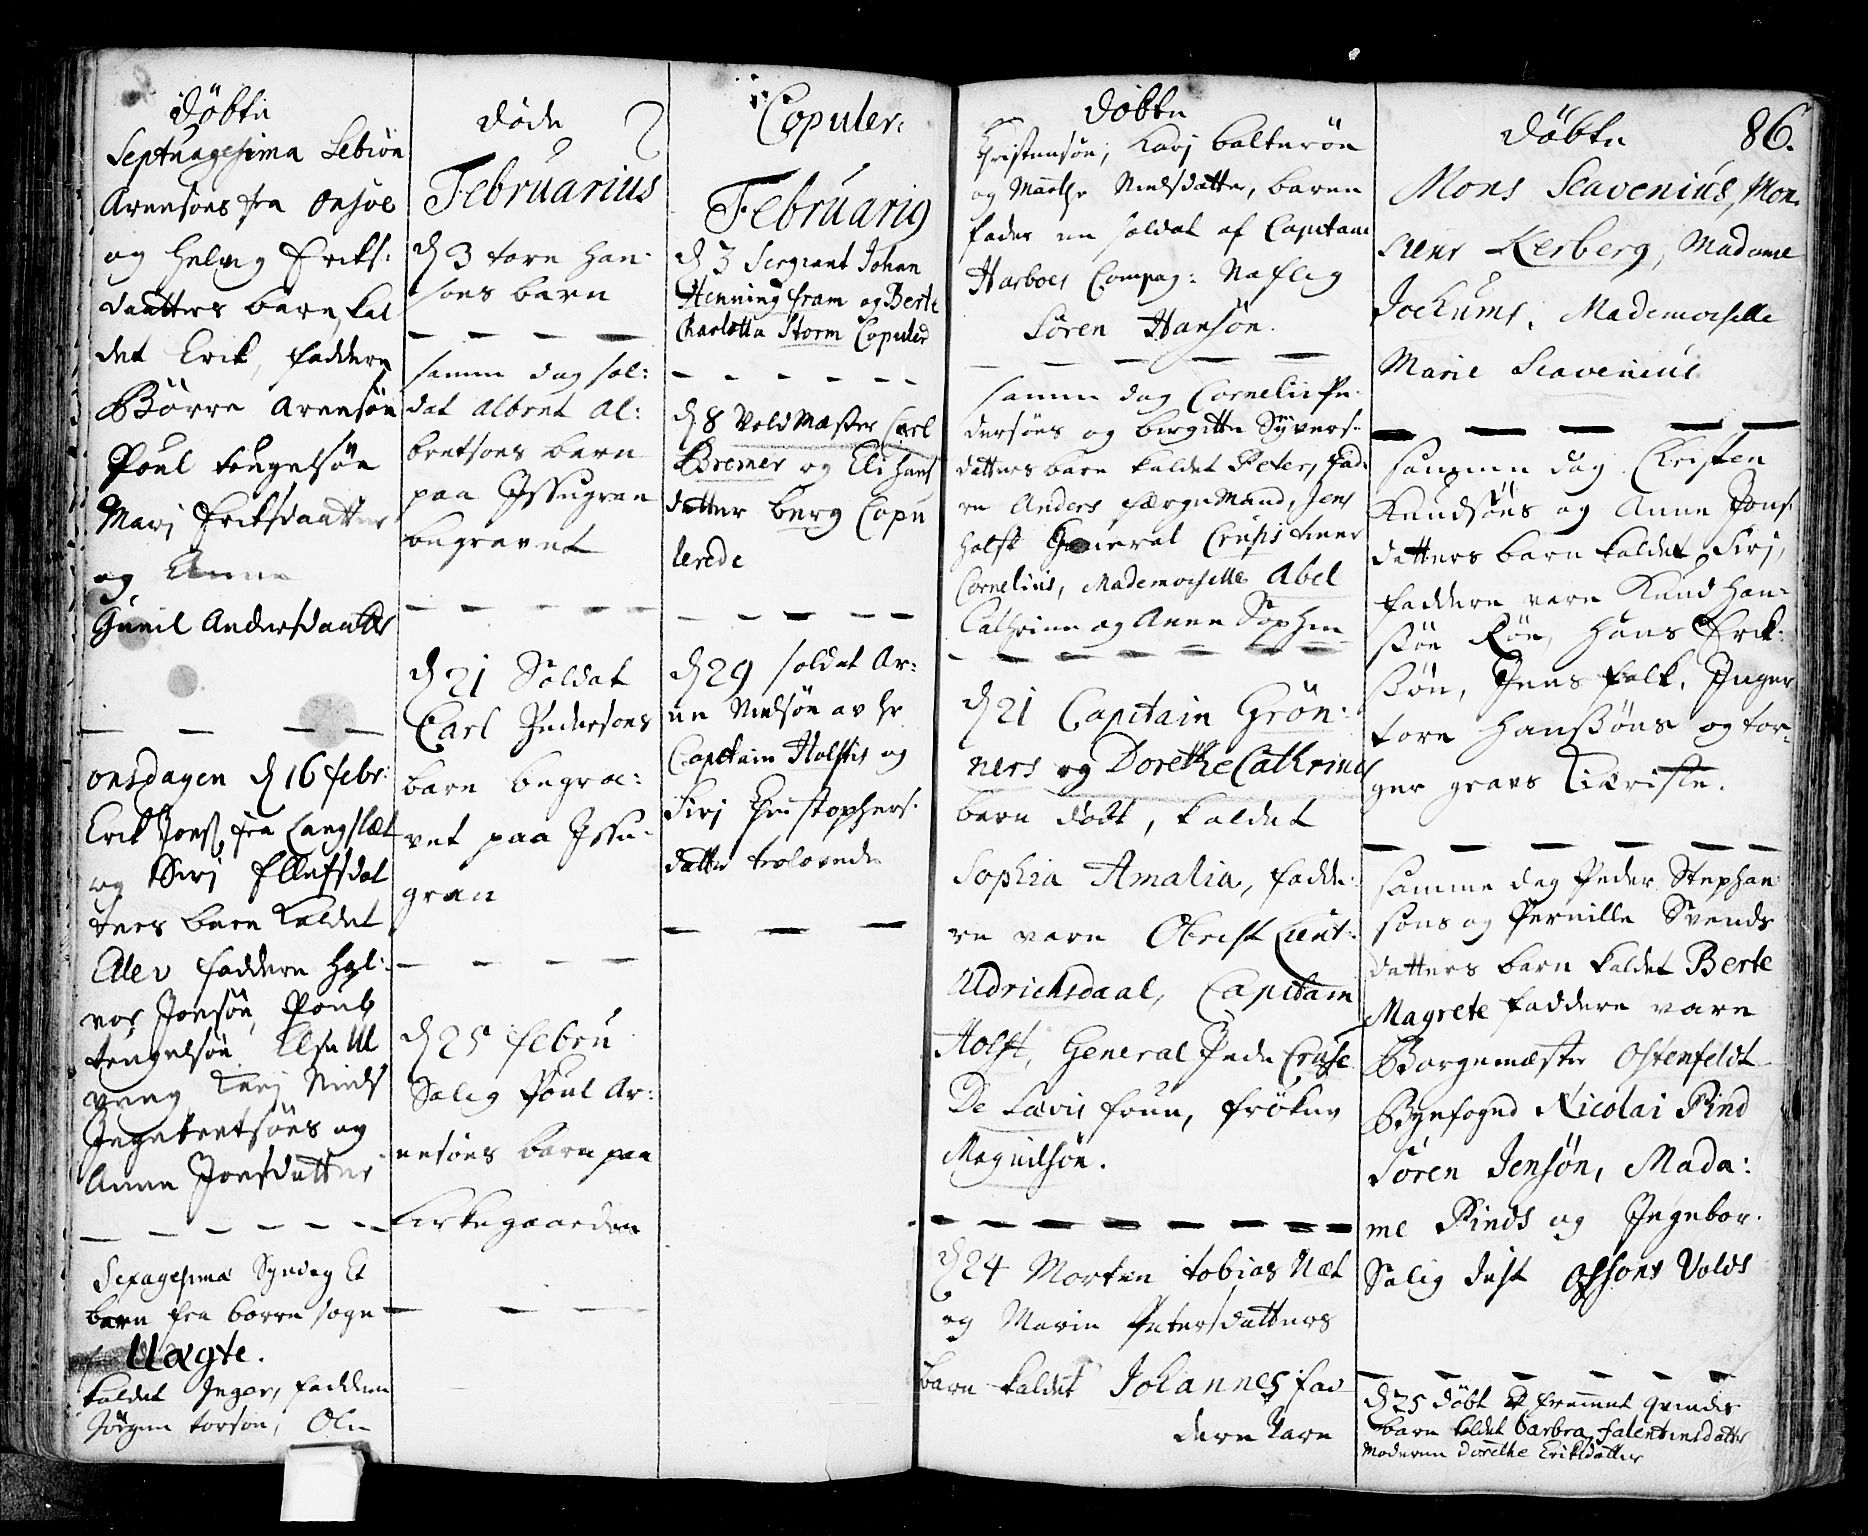 Döbte
Septuagesima Lebiön
Arensöns fra Onsöe
og Helvig Eriks:
daatters barn kal
det Erik, faddere
Börre Arensön
Poul Engelsön
Mari Eriksdaatter
og Anne
Gunil Andersdaatter
onsdagen d 16 febr:
Erik Jons, fra Langslæt
og Siri Ellefsdat
ters barn kaldet
Elev faddere Hal
vor Jonsön, Poul
Engelsön
Kari Niels
Ingebretsöns og
Anne Jonsdatter
Sexagesima Syndag Et
barn fra borre sogn
Uægte.
kaldet Inger, faddere
Jörgen torsön, Ole
Döde
Februarius
d 3 tore Han:
sons barn
samme dag sol:
dat Albret Al:
bretsons barn
paa Issegran
begravet
d 21 Soldat
Carl Pedersons
barn begra:
vet paa Isse:
gran
d 25 febru
Salig Poul Ar:
nesöns barn paa
kirkegaarden
Copuler:
Februarig
d 3 Sergiant Johan
Henning fram og Berte
Charlotta Storm Copuled
d 8 Vold Mæster Carl
Bremer og Eli Hans
datter berg Copu
lerede
d 29 soldat Ar:
ne Nielsön av hr
Capitain Holstis og
Siri Christophers:
datter trolovede
Döbte
Christensön, Kari balteröe
og Marthe Nielsdatter, barne
fader en soldat af Capitain
Harboes Compag: Naflig
Sören Hansön.
samme dag Cornelii Pe:
dersöns og birgitte Syvers:
datters barn kaldet Peter, fad:
re Anders færgeMand, Jens
Holst General Crusis tiener
Cornelius, Mademoiselle Abel
Cathrine og Anne Sophie
d 21 Capitain Grön:
ners og Dorethe Cathrines
barn döbt, kaldet
Sophia Amalia, fadde:
re vare Obrist Lieut:
Uldrichsdaal, Capitain
Holst, General Pede Cruse
De Lævis frue, fröken
Magnilsön.
d 24 Morten tobias Næt
og Marie Petersdatters
barn kaldet Johannes fad
dere Vare
Döbte
86.
Mons Scavenius, Mon:
sieur Kerberg, Madame
Jochums, Mademoiselle
Marie Scavenius
samme dag Christen
Knudsöns og Anne Jons
datters barn kaldet Siri,
faddere vare Knud Han:
sön Röe, Hans Erik:
sön, Jens falk, Inger
tore Hansöns og tor:
ger graus Kirstine.
samme dag Peder Stephan
sons og Pernille Svends
datters barn kaldet Berte
Magrete faddere vare
Borgemæster Ostenfeldt
Byefoged Nicolai Pind
Sören Jensön, Mada:
me Pinds og Ingebor.
Salig Just Olsons Volds
d 25 döbt Et fremmet qvindes
barn kaldet barbra falentinsdatter
Moderen Dorethe Eriksdatter